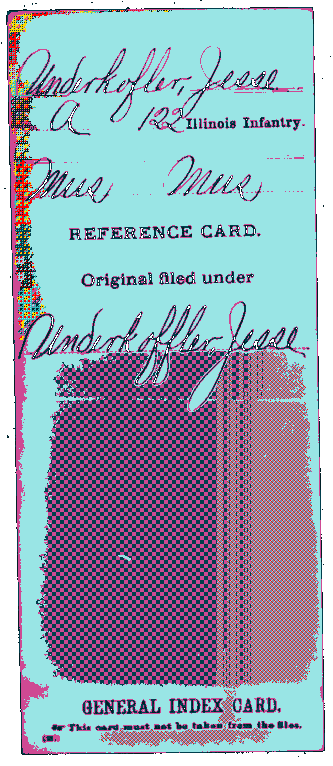 Underkofler, Jesse
A 122 Illinois Infantry.
Mus Mus
REFERENCE CARD.
Original filed under
Underkoffler, Jesse
GENERAL INDEX CARD.
This card must not be taken from the files.